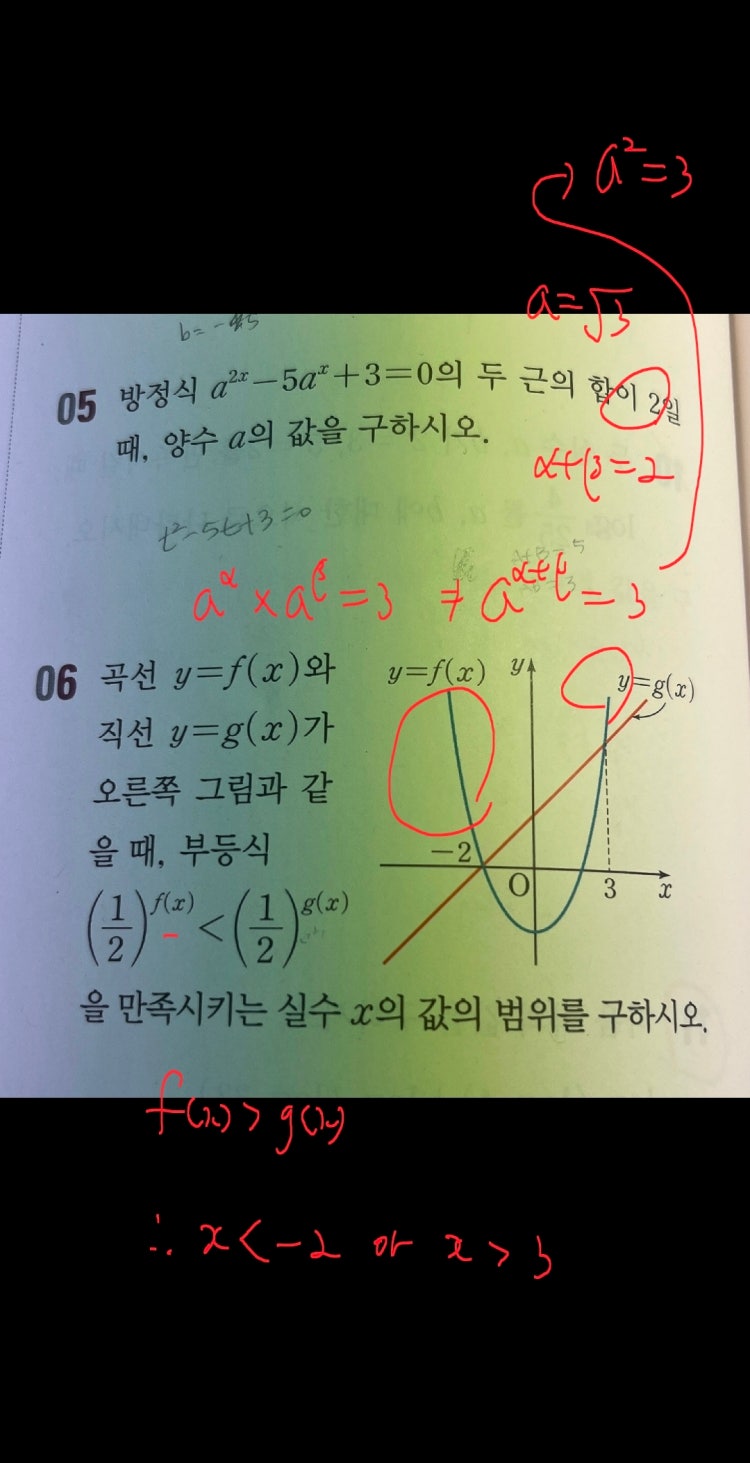 a²=3
a=√3
b=-
05 방정식 a²ˣ-5aˣ+3=0의 두 근의 합이 2일
때, 양수 a의 값을 구하시오.
α+β=2
t²-5t+3=0
a^α × a^β = 3 ⇒ a^(α+β) = 3
06 곡선 y=f(x)와
직선 y=g(x)가
오른쪽 그림과 같
을 때, 부등식
(1/2)^f(x) < (1/2)^g(x)
을 만족시키는 실수 x의 값의 범위를 구하시오.
y=f(x) y y=g(x)
-2 O 3 x
f(x)>g(x)
∴ x<-2 or x>3